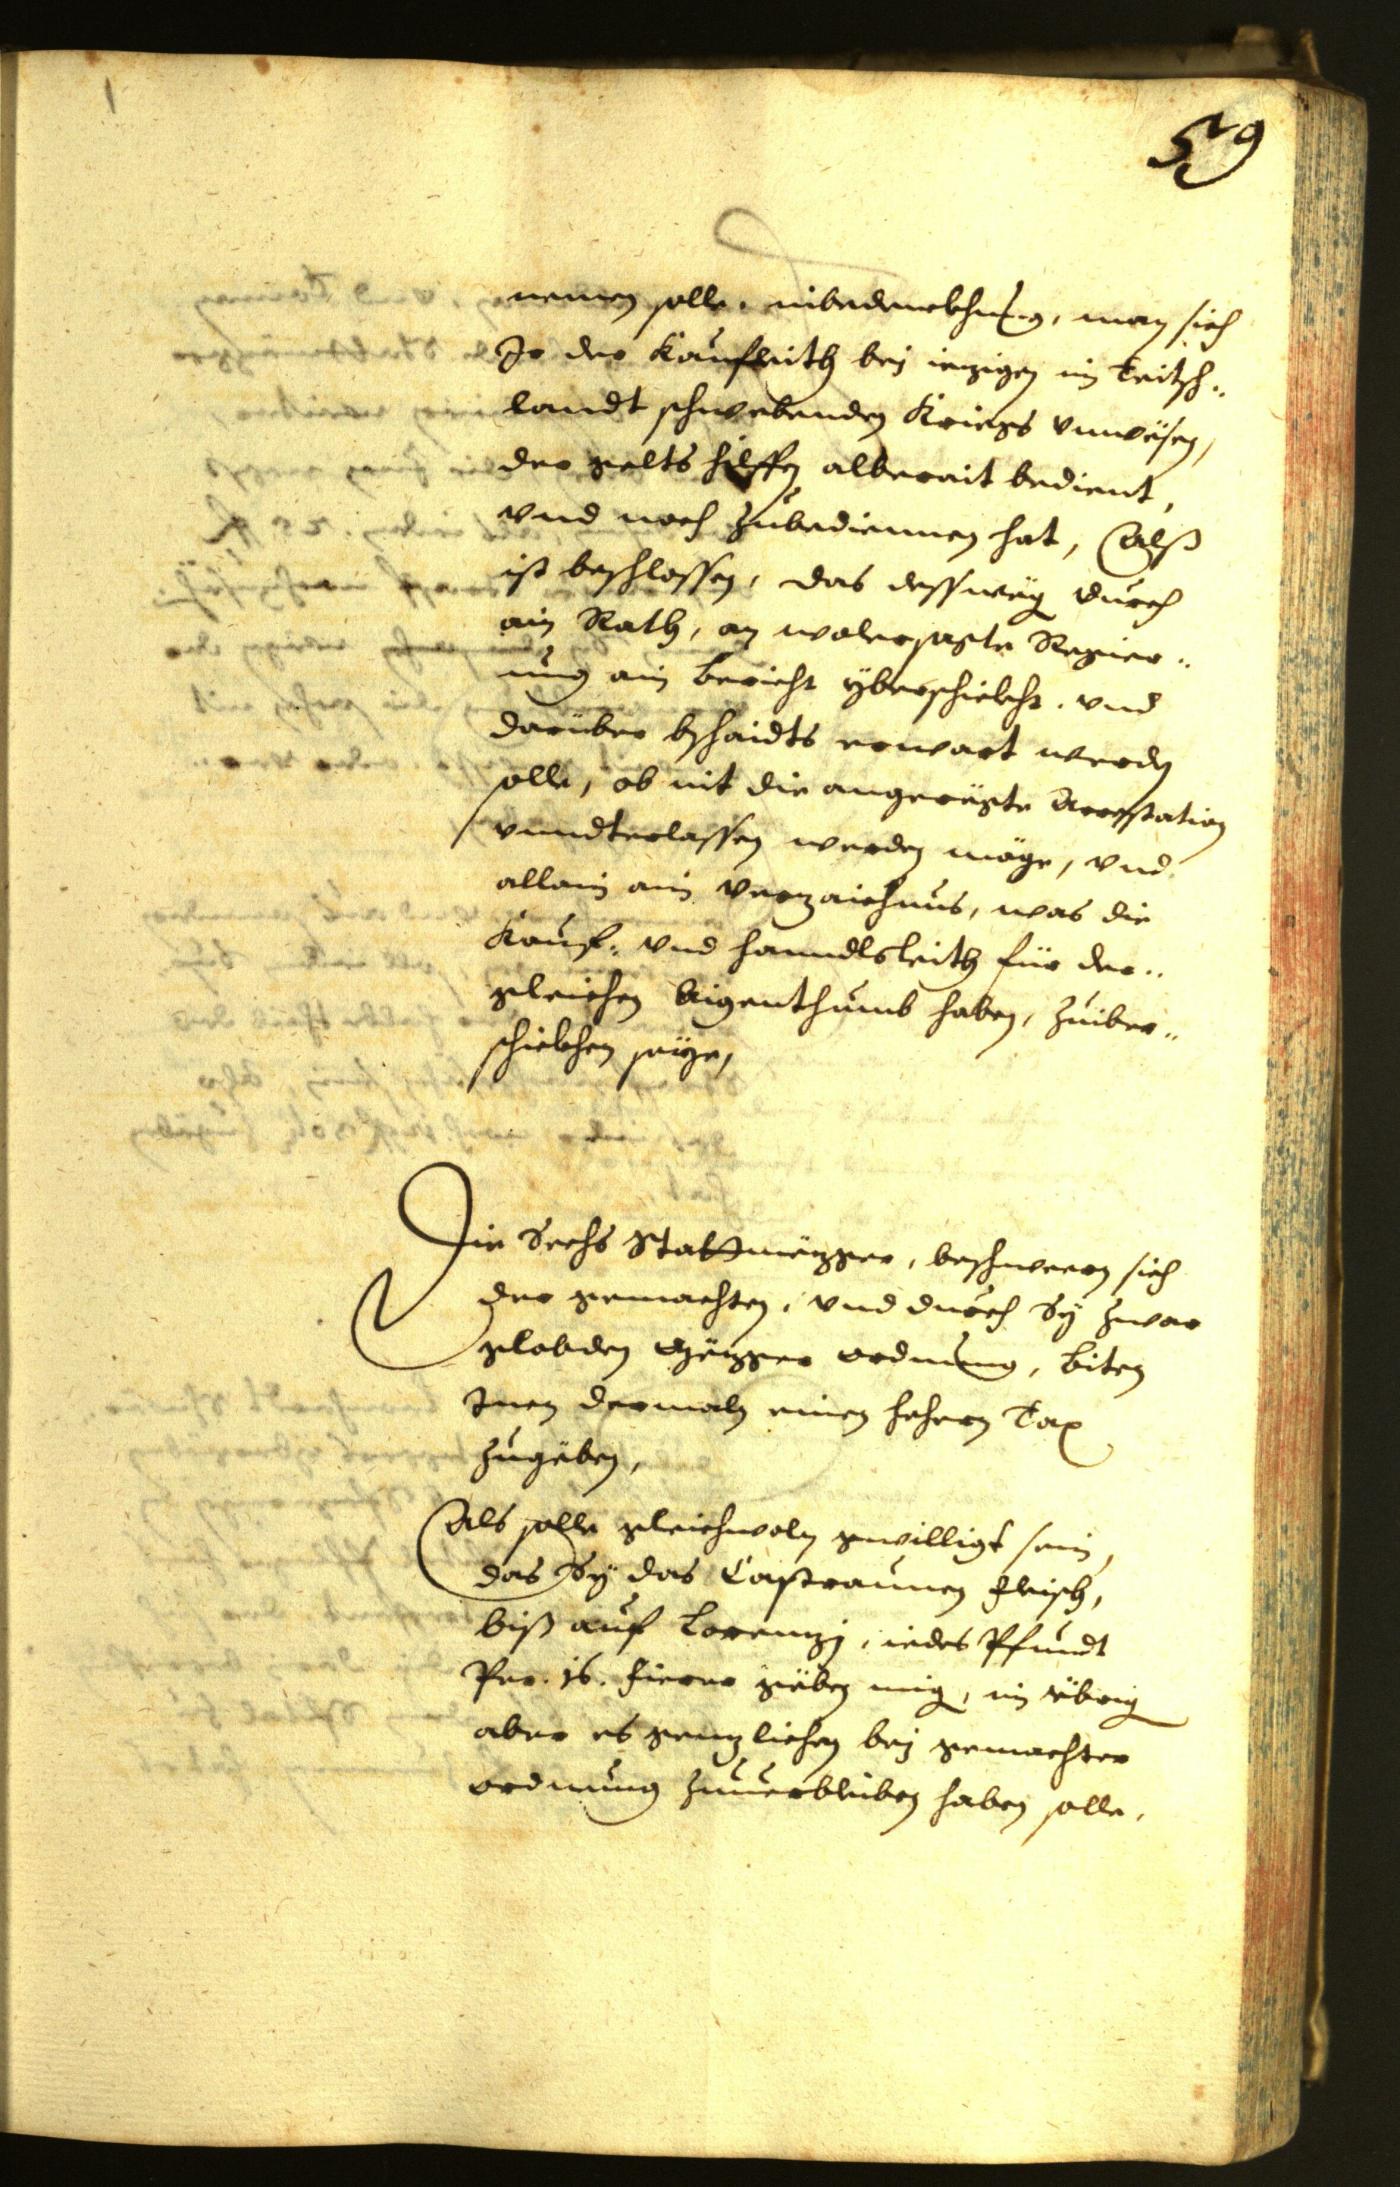 59
nemen solle, inbedenckhung, man sich
Jr der Kaufleith bej iezigen in Teitsch„
landt schwebenden Kriegs unwesen,
der gelts hilffen alberait bedient,
vnd noch zubediennen hat, Alß
ist beschlossen, das dessweg durch
ain Rath, an wolersagte Regier„
ung ain bericht yberschickht, vnd
darüber bschaidts erwart werden
solle, ob nit die angeregte Arrestation
vnndterlassen werden möge, vnd
allain ain verzaichnus, was die
Kauf: vnd hanndlsleith für der„
gleichen aigenthumb haben, zuiber„
schickhen seye,
Die Sechs Stattmezger, beschwern sich
der gemachten, vnd durch Sy zwar
globden Mezger ordnung, biten
Jnen dermaln einen hehern Tax
zugeben,
Als solle gleichwoln gewilligt sein,
das Sy das Castraunen fleisch,
biß auf Lorenzj, iedes Pfundt
Per. 16. fierer geben mig, im übrig
aber es genzlichen bej gemachter
ordnung zuuerbleiben haben solle,